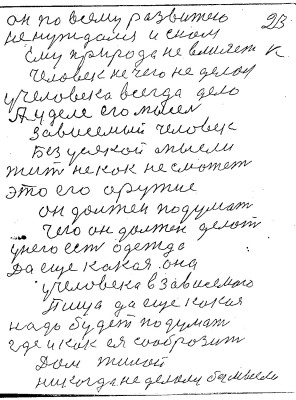 он по всему развитею 2В
не нуждался и сном
ему природа не влияет к
Человек не чего не делол
у человека всегда дело
А у деле его мысел
зависемый человек
Без усякой мысли
жит некок не сможет
это его оружие
он должен подумат
Чего он должен делот
у него ест одежда
Да еще какая она
у человека в зависемого
Пища да еще какоя
надо будет подумат
где и как ея сооброзит
Дом жилой
никогда не делоли бы мысли